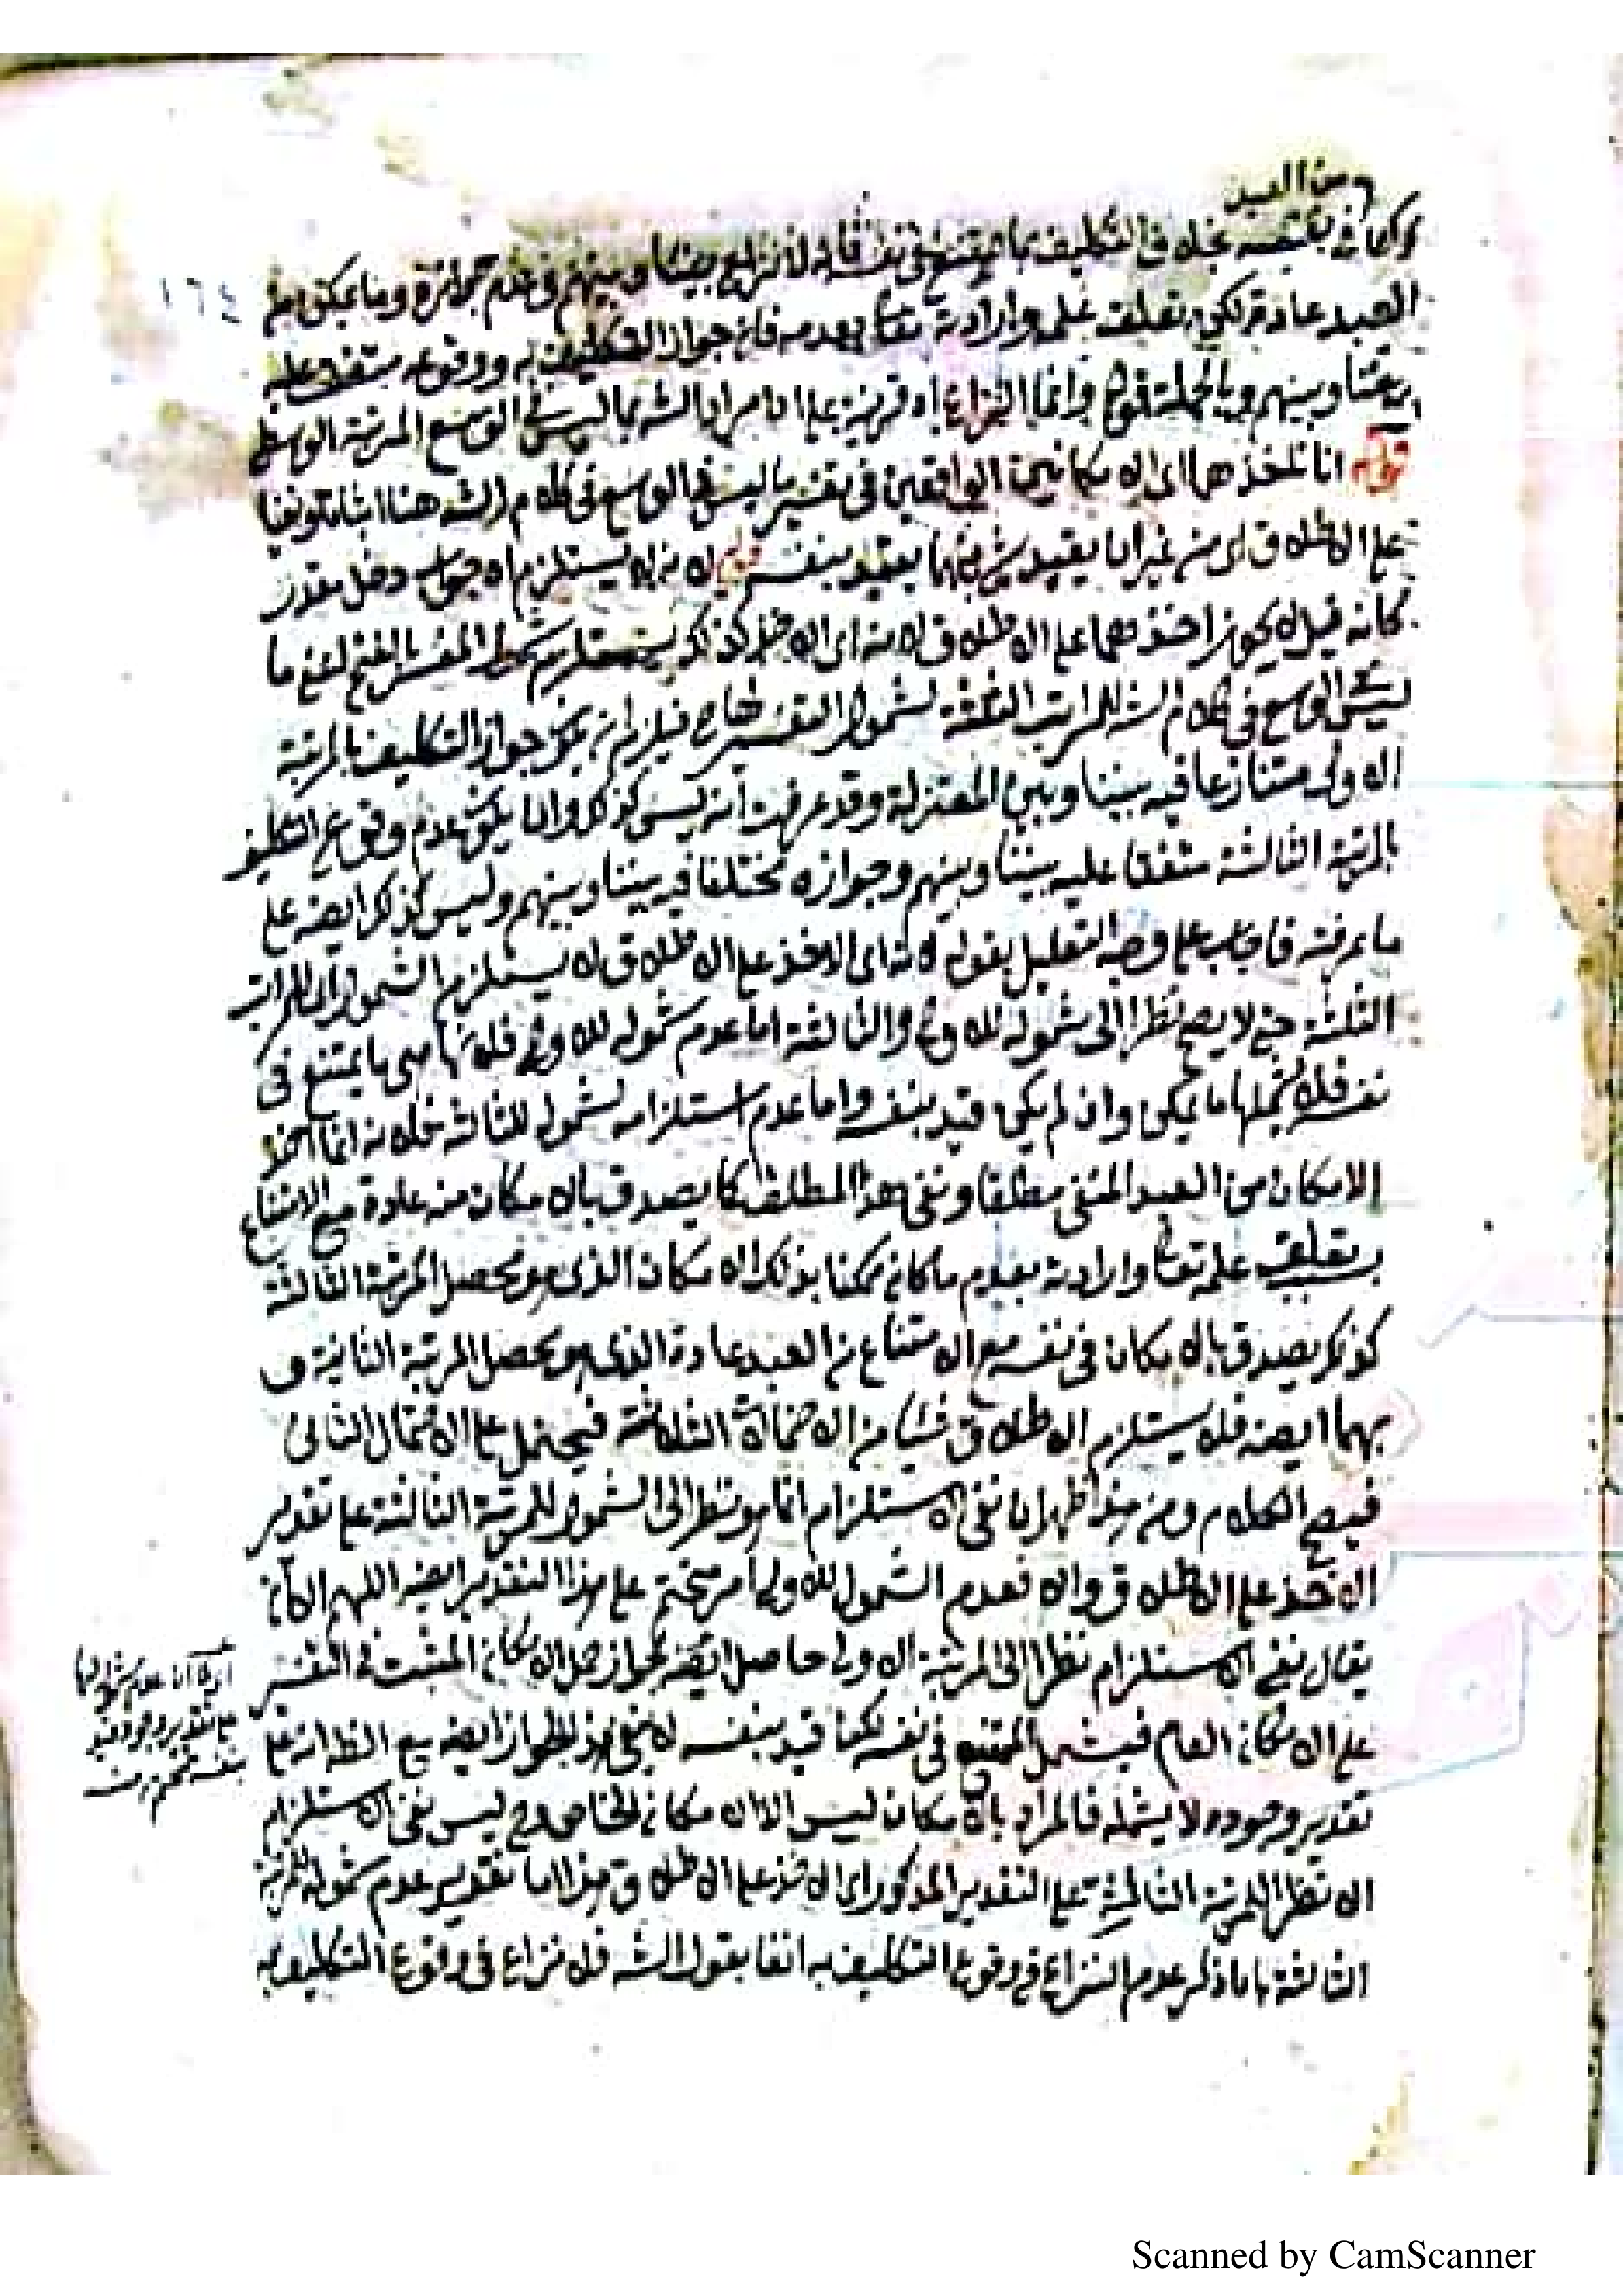 من العبد
بخلاف التكليف بما يمتنع في نفسه فانه لا نزاع بيننا وبينهم في عدم جوازه وما يمكن من
١٦٤
العبد عادة لكن تعلق علمه وارادته تعالى بعدمه فان جواز التكليف به ووقوعه متفق عليه
بيننا وبينهم وبالجملة قوله وانما النزاع اه قرينة على ان مراد الشه بما ليس في الوسع المرتبة الوسطى
قوله انا نأخذهما اى الامكانين الواقعين في تفسير ما ليس في الوسع في كلام الشه هنا
على الاطلاق اى من غير ان يقيد بنفسه قوله لانه لا يستلزم اه جواب دخل مقدر
كانه قيل لا يجوز اخذهما على الاطلاق لانه اى الاخذ كذلك يستلزم شمول المفسر بالفتح اعنى ما
ليس في الوسع في كلام الشه للمراتب الثلثة لشمول التفسير لها ح فيلزم ان يكون جواز التكليف بالمرتبة
الاولى متنازعا فيه بيننا وبين المعتزلة وقد عرفت أنه ليس كذلك وان يكون عدم وقوع التكليف
بالمرتبة الثالثة متفقا عليه بيننا وبينهم وجوازه مختلفا فيه بيننا وبينهم وليس كذلك ايضه على
ما عرفته فاجاب على وجه التعليل بقوله لانه اى الاخذ على الاطلاق لا يستلزم الشمول للمراتب
الثلثة حتى لا يصح نظرا الى شموله للاولى والثالثة اما عدم شموله للاولى فلانها هى ما يمتنع في
نفسه فلا يشملها ما يمكن وان لم يكن قيد بنفسه واما عدم استلزامه لشموله للثالثة فلانه انما اخذ
الامكان من العبد المنفى مطلقا ونفى هذا المطلق كما يصدق بالامكان منه عادة مع الامتناع
بسبب تعلق علمه تعالى وارادته بعدم ما كان ممكنا بذلك الامكان الذى هو محصل المرتبة الثالثة
كذلك يصدق بالامكان في نفسه مع الامتناع من العبد عادة الذى هو محصل المرتبة الثانية و
بهما ايضه فلا يستلزم الاطلاق شيئا من الاحتمالات الثلاثة فيحتمل على الاحتمال الثانى
فيصح الكلام ومن هذا ظهر ان نفى الاستلزام انما هو نظرا الى الشمول للمرتبة الثالثة على تقدير
الاخذ على الاطلاق والا فعدم الشمول للاولى امر متحتم على هذا التقدير ايضه اللهم الا ان
يقال نفى الاستلزام نظرا الى المرتبة الاولى حاصل ايضه لجواز حمل الامكان المثبت في التفسير
على الامكان العام فيشمل الممتنع في نفسه لكن قيد بنفسه لا ينفى هذا الجواز ايضه مع انه على
تقدير وجوده لا يشمله فالمراد بالامكان ليس الا الامكان الخاص وح ليس نفى الاستلزام
الا نظرا للمرتبة الثالثة على التقدير المذكور اى الاخذ على الاطلاق هذا اما تقدير عدم شموله للمرتبة
الثالثة بما ذكر عدم النزاع في وقوع التكليف به انفا بقول الشه فلا نزاع في وقوع التكليف به
عدم شموله لها
على تقدير وجود قيد
بنفسه
Scanned by CamScanner